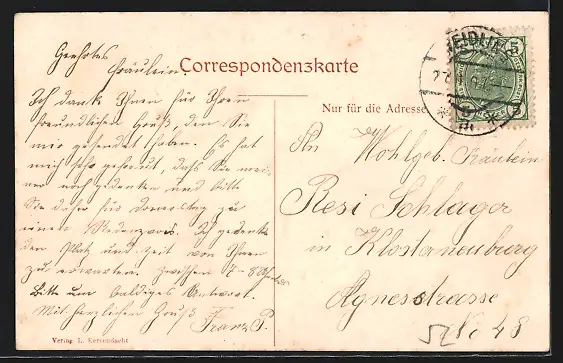 Geehrtes
Fräulein
Correspondenzkarte
Ich danke Ihnen für Ihren
freundlichen Gruß, den Sie
mir gesendet haben. Es hat
mich sehr gefreut, daß Sie mei-
ner noch gedenken und bitte
Sie daher für Donnerstag zu
einem Ich gedenke
den Platz und Zeit von Ihnen
zu erwarten. Zwischen 7-8 Uhr
Bitte um baldiges Antwort.
Mit herzlichen Gruß
Franz P.
Verlag L. Kerrendacht
Nur für die Adresse.
MEIDLING
5
An Wohlgeb. Fräulein
Resi Schlager
in Klosterneuburg
Agnesstrasse
No 48